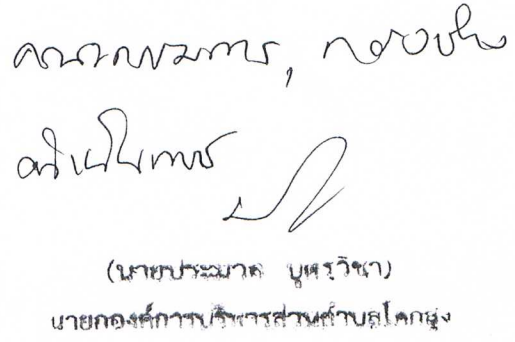 คณะกรรมการ, กองช่าง
ดำเนินการ
(นายประมวล บุตรวิชา)
นายกองค์การบริหารส่วนตำบลโคกสูง